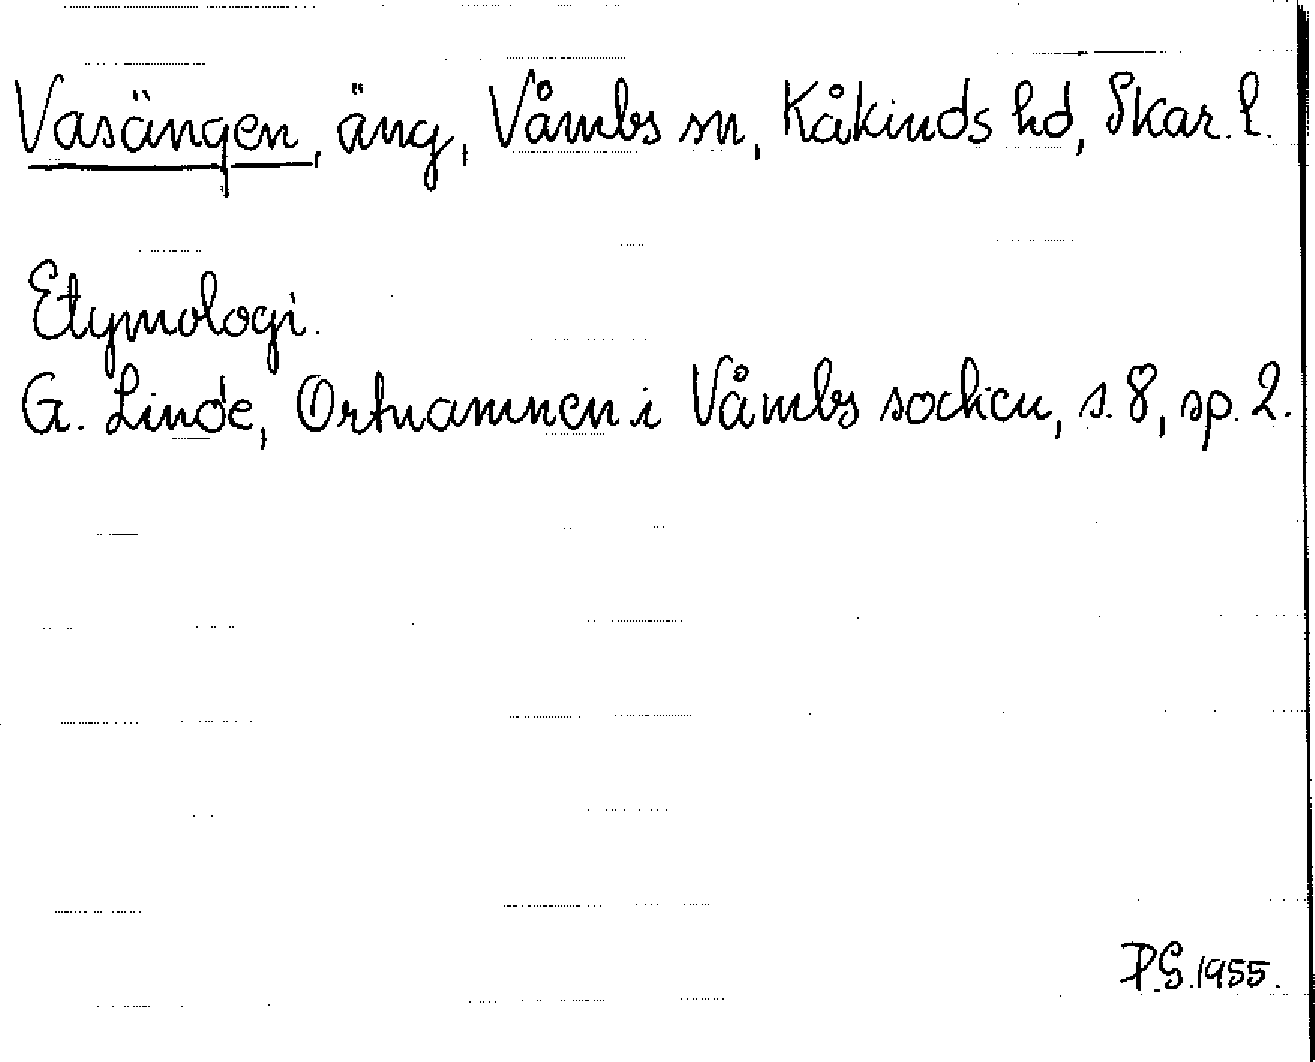 Vasängen, äng, Våmbs sn, Kåkinds hd, Skar. l.
Etymologi.
G. Linde, Ortnamnen i Våmbs socken, s. 8, sp. 2.
P.G. 1955.